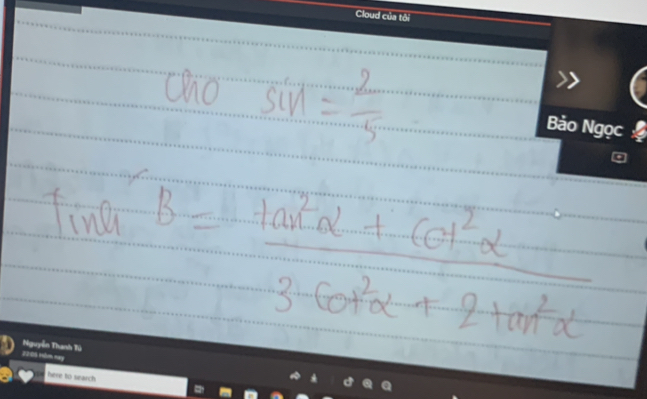 Cloud của tôi
Bảo Ngọc
Cho sin = 2/5
Tính B = tan²α + cot²α
3 cot²α + 2 tan²α
Nguyễn Thanh Tú
here to search